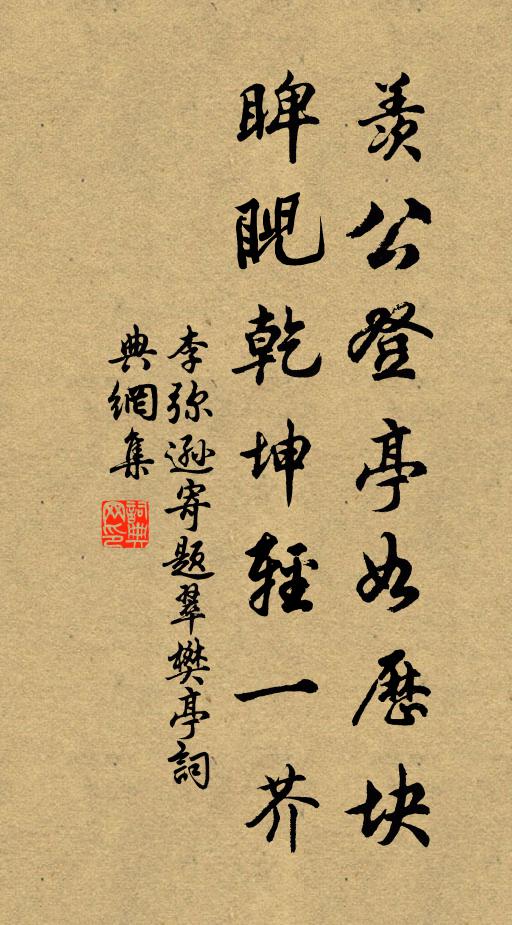 羨公登亭如歷块
睥睨乾坤輕一芥
李弥遜寄题翠樊亭詞
典網集
詞典网印